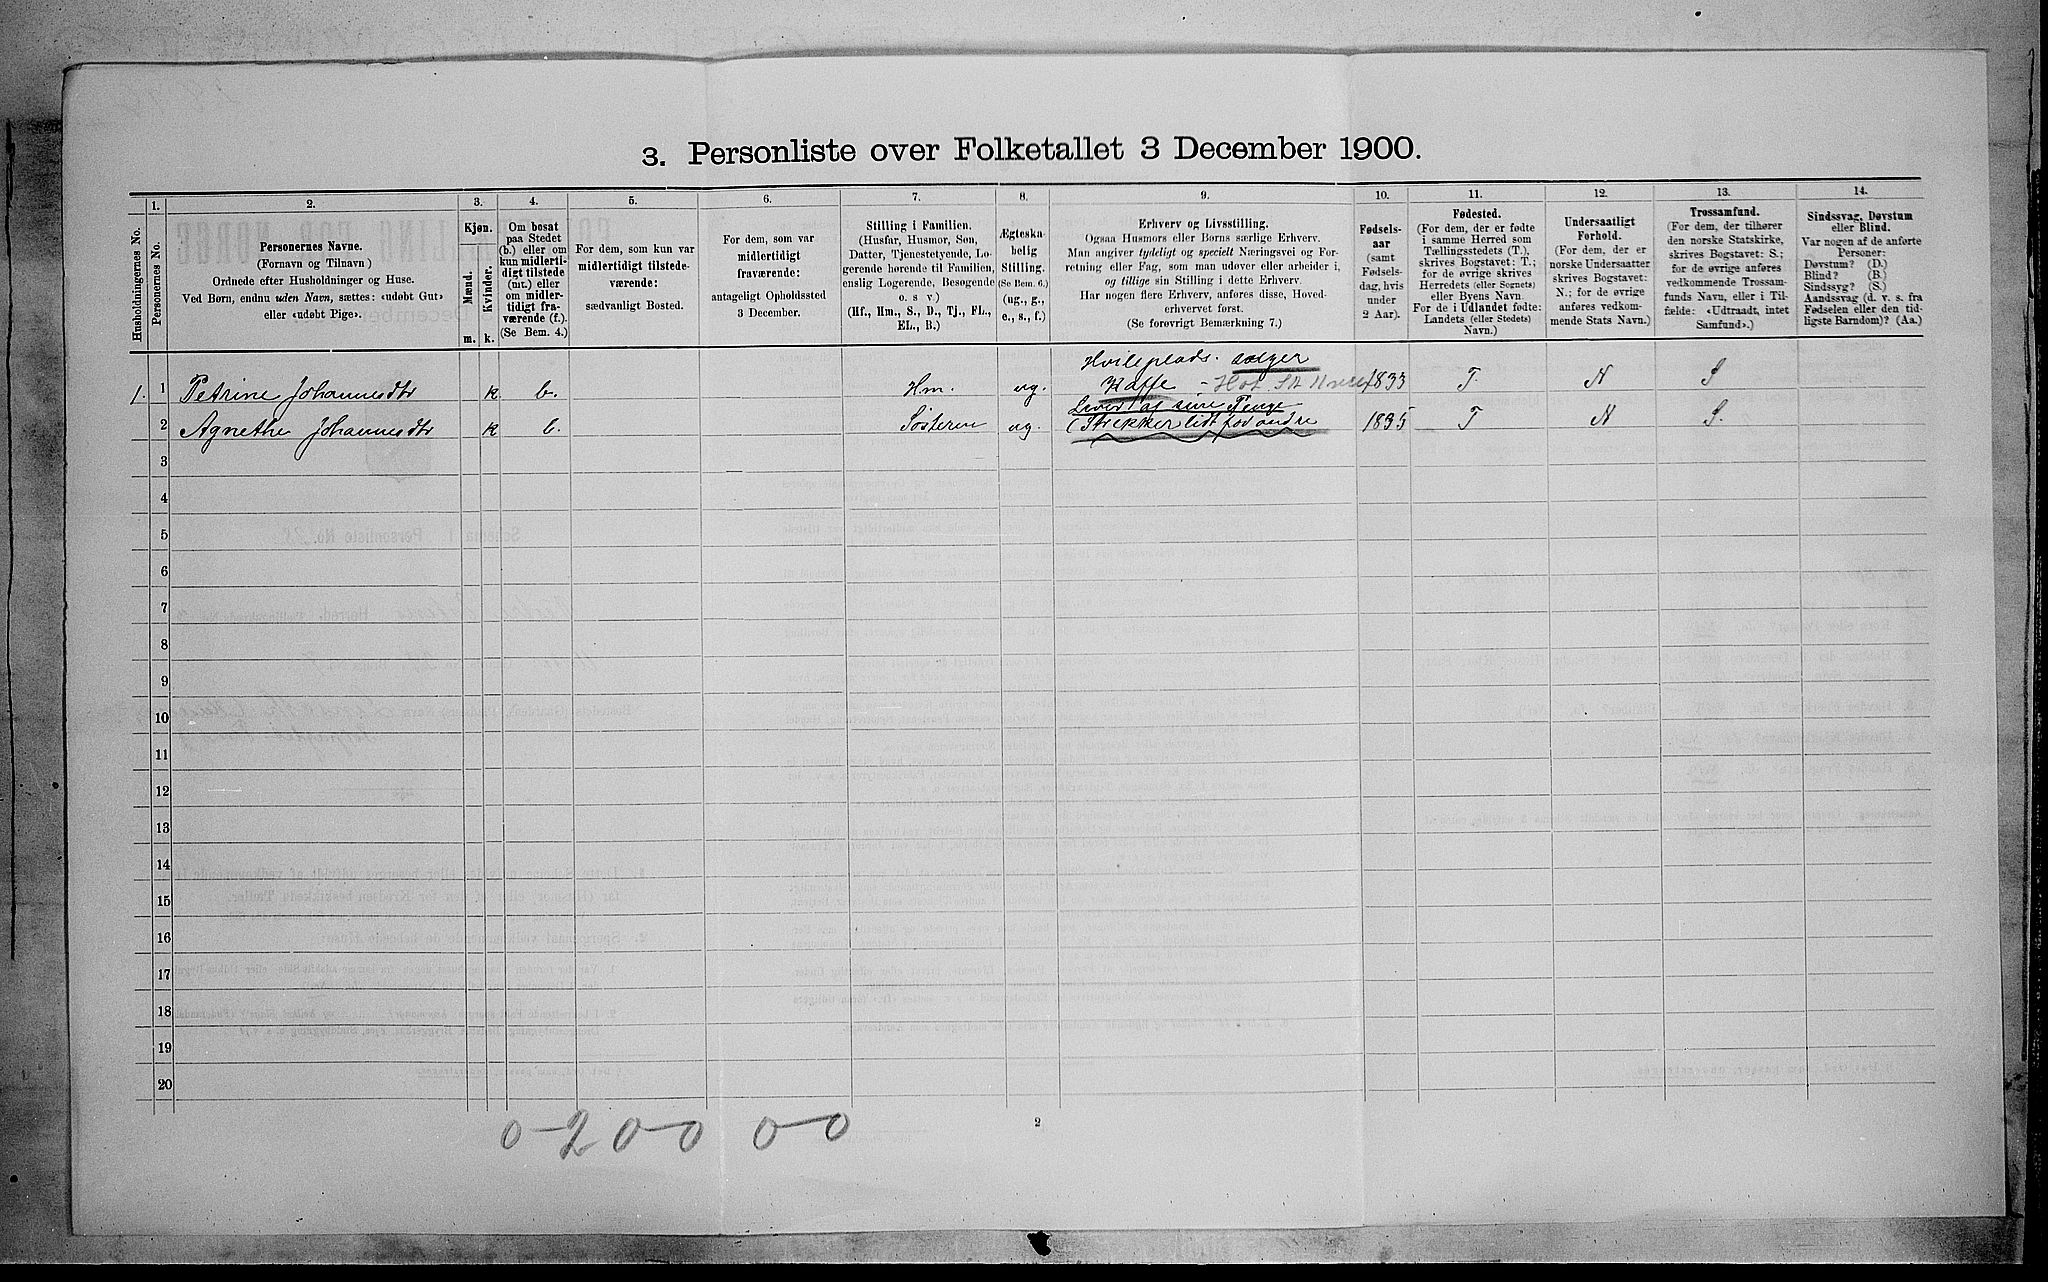 3. Personliste over Folketallet 3 December 1900.
1. 2. 3. 4. 5. 6. 7. 8. 9. 10. 11. 12. 13. 14.
Husholdningernes No.
Personernes No.
Personernes Navne.
(Fornavn og Tilnavn)
Ordnede efter Husholdninger og Huse.
Ved Børn, endnu uden Navn, sættes: «udøbt Gut»
eller «udøbt Pige».
Kjøn.
Mænd.
Kvinder.
m. k.
Om bosat
paa Stedet
(b.) eller om
kun midlerti-
digt tilstede
(mt.) eller
om midler-
tidigt fra-
værende (f.).
(Se Bem. 4.)
For dem, som kun var
midlertidigt tilstede-
værende:
sædvanligt Bosted.
For dem, som var
midlertidigt
fraværende:
antageligt Opholdssted
3 December.
Stilling i Familien.
(Husfar, Husmor, Søn,
Datter, Tjenestetyende, Lo-
gerende hørende til Familien,
enslig Logerende, Besøgende
o. s v.)
(Hf., Hm., S., D., Tj., FL.,
EL., B.)
Ægteska-
belig
Stilling.
(Se Bem. 6.)
(ug., g.,
e., s., f.)
Erhverv og Livsstilling.
Ogsaa Husmors eller Børns særlige Erhverv.
Man angiver tydeligt og specielt Næringsvei og For-
retning eller Fag, som man udøver eller arbeider i,
og tillige sin Stilling i dette Erhverv.
Har nogen flere Erhverv, anføres disse, Hoved-
erhvervet først.
(Se forøvrigt Bemærkning 7.)
Fødsels-
aar
(samt
Fødsels-
dag, hvis
under
2 Aar).
Fødested.
(For dem, der er fødte
i samme Herred som
Tællingsstedets (T.),
skrives Bogstavet: T.;
for de øvrige skrives
Herredets (eller Sognets)
eller Byens Navn.
For de i Udlandet fødte:
Landets (eller Stedets)
Navn.)
Undersaatligt
Forhold.
(For dem, der er
norske Undersaatter
skrives Bogstavet:
N.; for de øvrige
anføres vedkom-
mende Stats Navn.)
Trossamfund.
(For dem, der tilhører
den norske Statskirke,
skrives Bogstavet: S.;
for de øvrige anføres
vedkommende Trossam-
funds Navn, eller i Til-
fælde: «Udtraadt, intet
Samfund».)
Sindssvag, Døvstum
eller Blind.
Var nogen af de anførte
Personer:
Døvstum? (D.)
Blind? (B.)
Sindssyg? (S.)
Aandssvag (d. v. s. fra
Fødselen eller den tid-
ligste Barndom)? (Aa.)
Hvileplads. sælger
1. 1 Petrine Johannesdtr k b. Hm. ug. Kaffe 1833 T. N S
Lever af sine Penge
2 Agnethe Johannesdtr k b. Søsteren ug. (Strikker lidt for andre 1835 T N S.
3
4
5
6
7
8
9
10
11
12
13
14
15
16
17
18
19
20
0-200-0 0-0
2